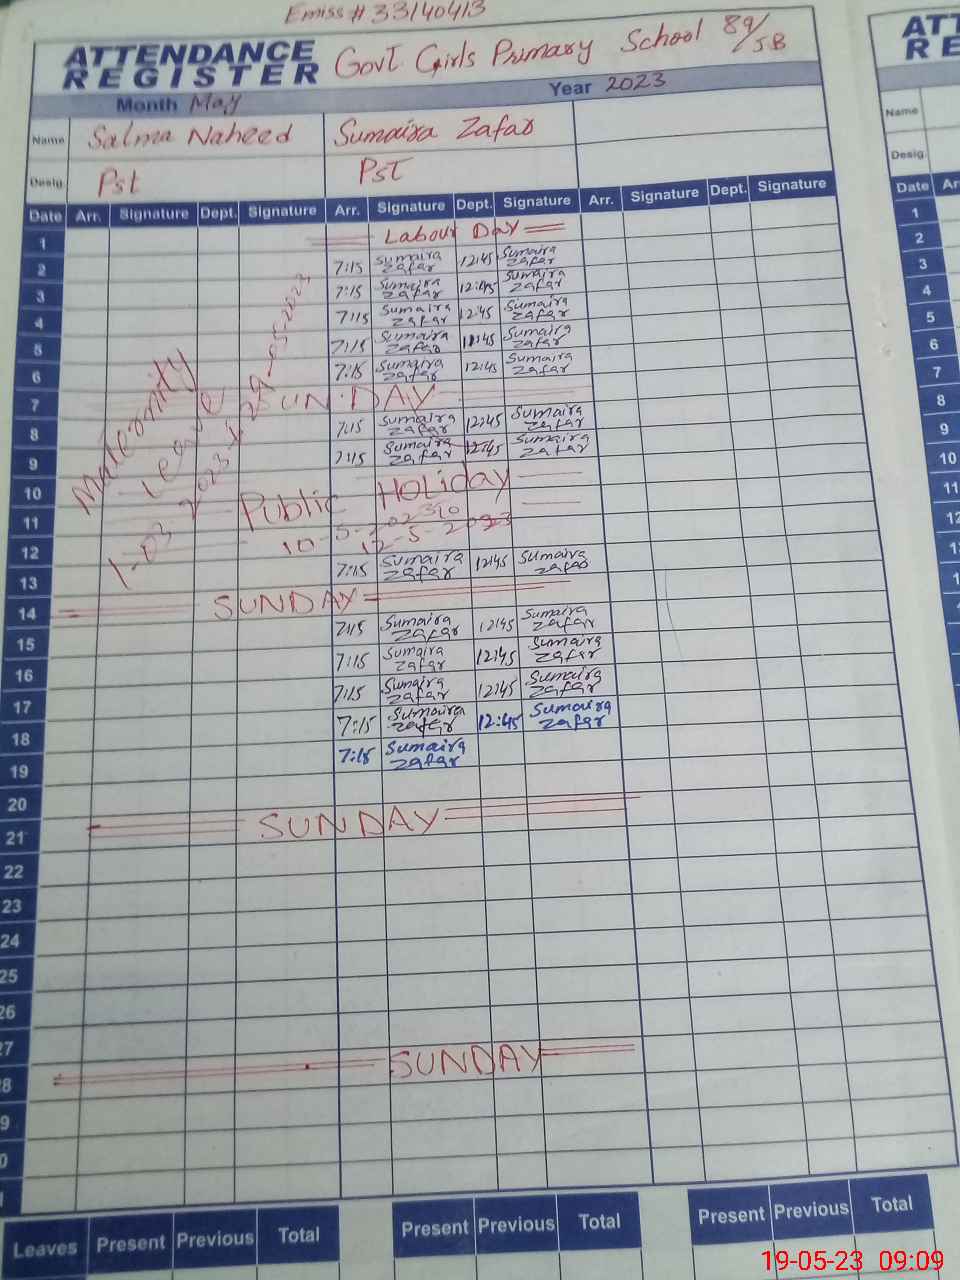 Emiss # 33140413
ATTENDANCE REGISTER Govt Girls Primary School 89/5B
Month May Year 2023
Name Salma Naheed Sumaira Zafar
Desig. Pst PST
Date Arr. Signature Dept. Signature Arr. Signature Dept. Signature Arr. Signature Dept. Signature
1 Labour Day
2 7:15 Sumaira Zafar 12:45 Sumaira Zafar
3 7:15 Sumaira Zafar 12:45 Sumaira Zafar
4 7:15 Sumaira Zafar 12:45 Sumaira Zafar
5 7:15 Sumaira Zafar 12:45 Sumaira Zafar
6 7:15 Sumaira Zafar 12:45 Sumaira Zafar
7 SUNDAY
8 7:15 Sumaira Zafar 12:45 Sumaira Zafar
9 7:15 Sumaira Zafar 12:45 Sumaira Zafar
Maternity
leave
1-03-2023 29-05-2023
10 Public Holiday
11 10-5-2023 to
12-5-2023
12
13 7:15 Sumaira Zafar 12:45 Sumaira Zafar
14 SUNDAY
15 7:15 Sumaira Zafar 12:45 Sumaira Zafar
16 7:15 Sumaira Zafar 12:45 Sumaira Zafar
17 7:15 Sumaira Zafar 12:45 Sumaira Zafar
18 7:15 Sumaira Zafar 12:45 Sumaira Zafar
19 7:15 Sumaira Zafar
20
21 SUNDAY
22
23
24
25
26
27
8 SUNDAY
9
0
Leaves Present Previous Total Present Previous Total Present Previous Total
ATT
RE
Name
Desig.
Date Ar
1
2
3
4
5
6
7
8
9
10
11
12
19-05-23 09:09